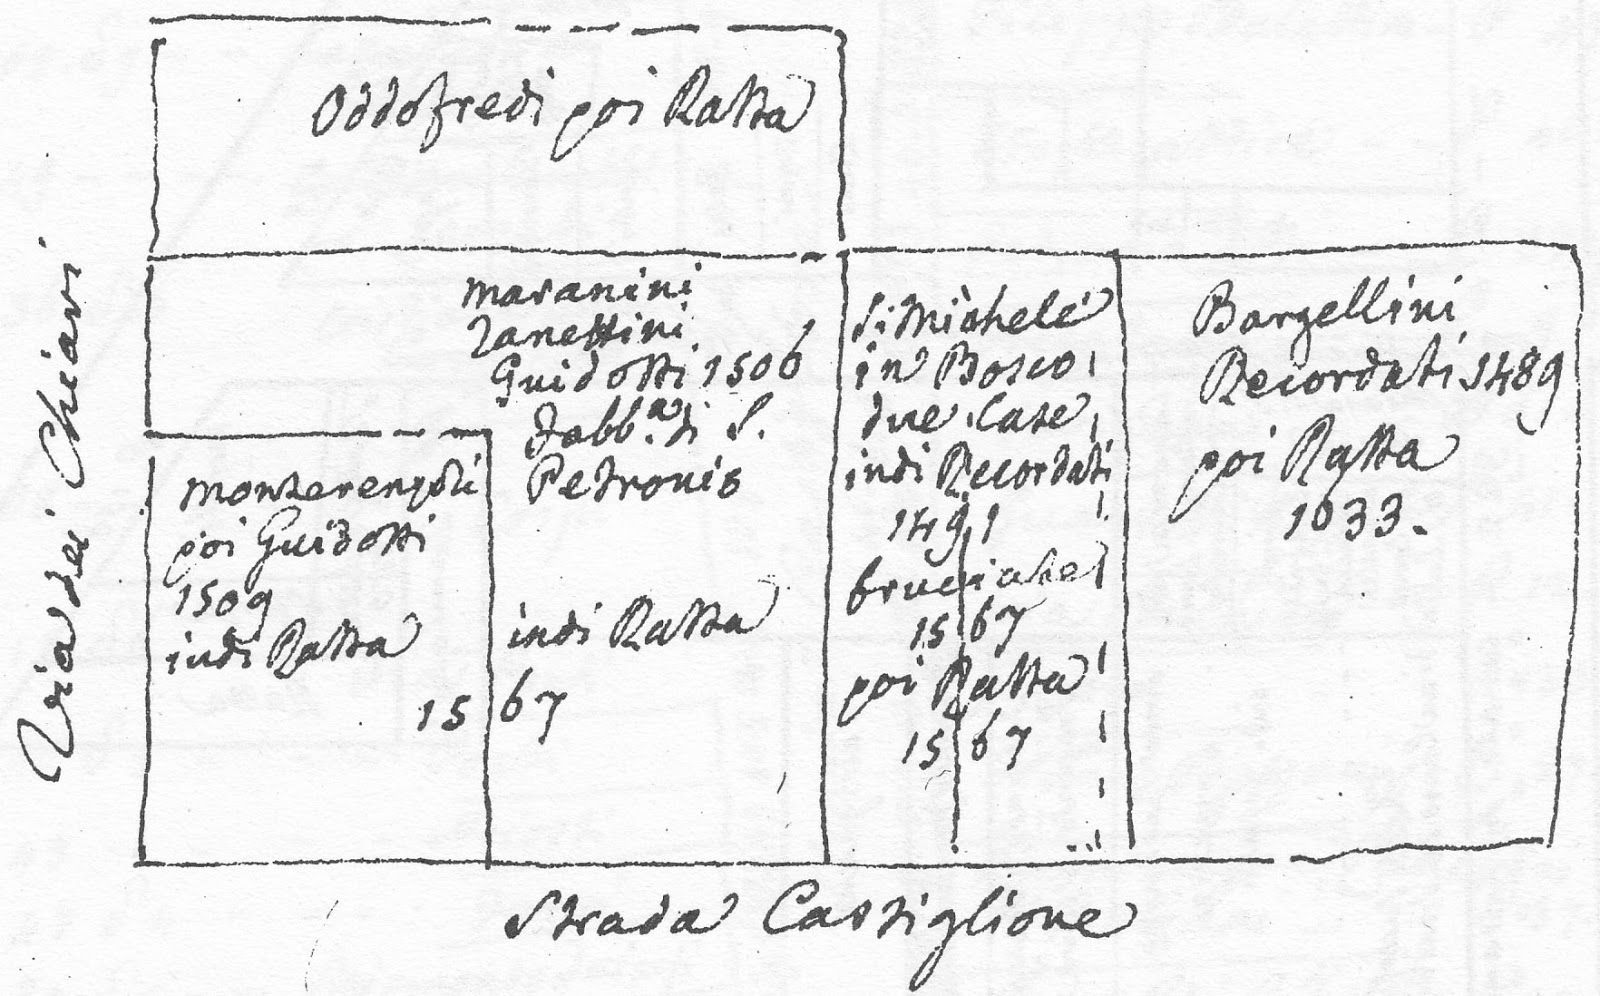 Oddofredi poi Ratta
Maranini
Zanettini
Guidotti 1506
Fabb.a di S.
Petronio
indi Ratta
S. Michele
in Bosco
due Case
indi Recordati
1491
bruciate
1567
poi Ratta
1567
Bargellini
Recordati 1489
poi Ratta
1033.
Monterenzoli
poi Guidotti
1509
indi Ratta
1567
Via dei Chiari
Strada Castiglione